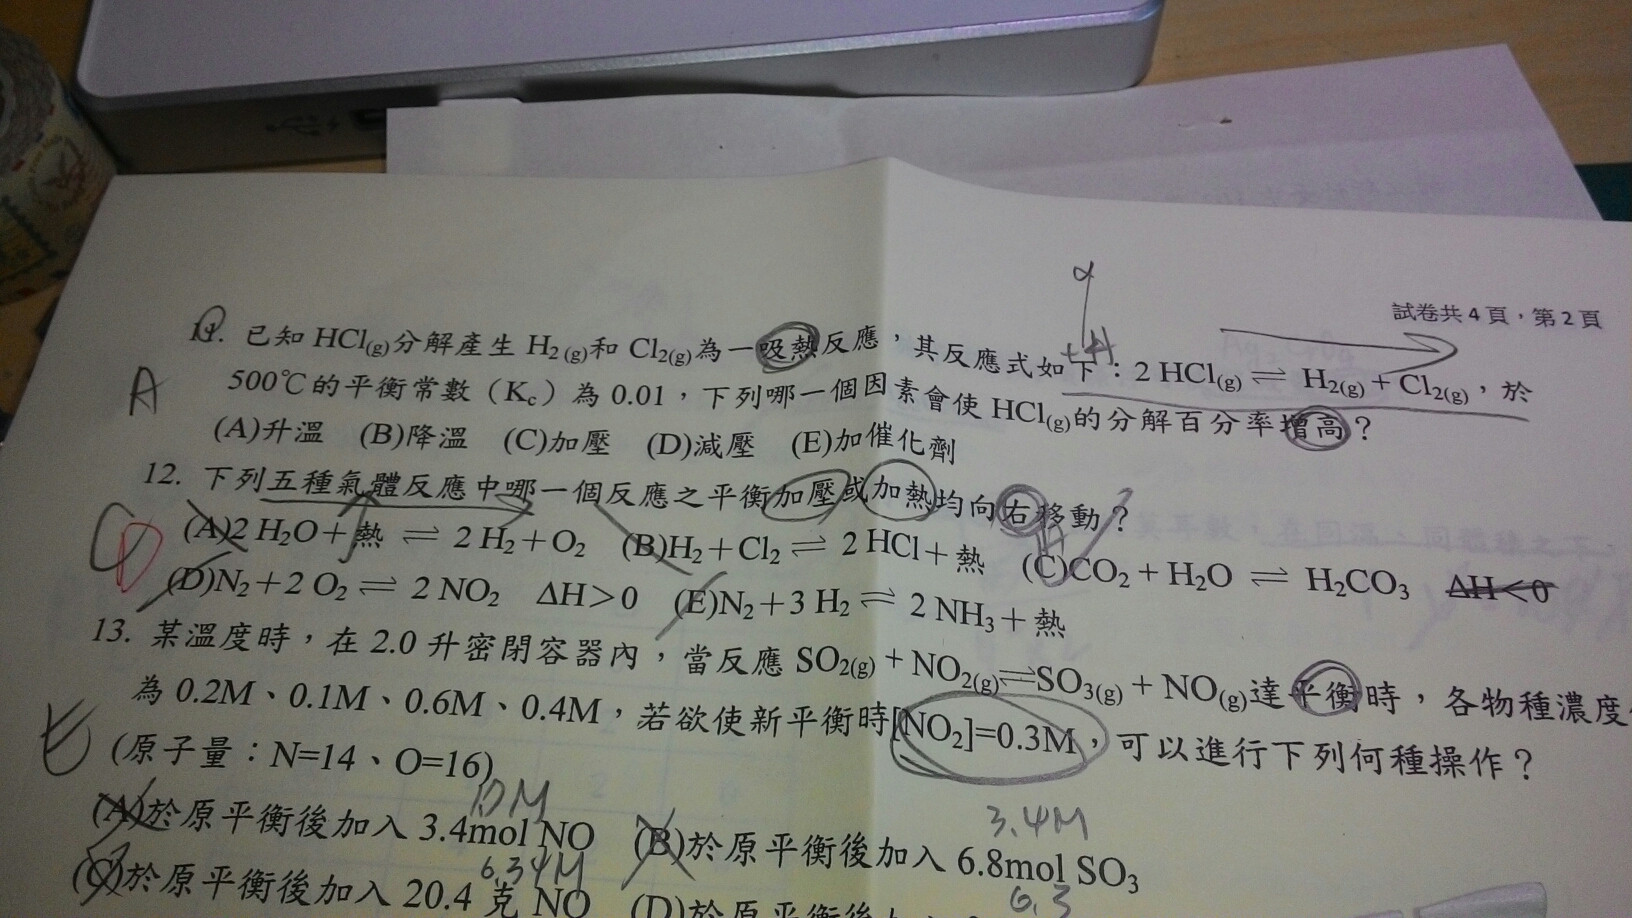 試卷共4頁，第2頁
α
+H
11. 已知 HCl(g)分解產生 H2(g)和 Cl2(g)為一吸熱反應，其反應式如下：2 HCl(g) ⇌ H2(g) + Cl2(g)，於
A
500℃的平衡常數（Kc）為 0.01，下列哪一個因素會使 HCl(g)的分解百分率增高？
(A)升溫 (B)降溫 (C)加壓 (D)減壓 (E)加催化劑
12. 下列五種氣體反應中哪一個反應之平衡加壓或加熱均向右移動？
C
D
(A)2 H2O+熱 ⇌ 2 H2+O2 (B)H2+Cl2 ⇌ 2 HCl+熱 (C)CO2+H2O ⇌ H2CO3 ΔH<0
(D)N2+2 O2 ⇌ 2 NO2 ΔH>0 (E)N2+3 H2 ⇌ 2 NH3+熱
13. 某溫度時，在 2.0 升密閉容器內，當反應 SO2(g)+NO2(g)⇌SO3(g)+NO(g)達平衡時，各物種濃度
為 0.2M、0.1M、0.6M、0.4M，若欲使新平衡時[NO2]=0.3M，可以進行下列何種操作？
E
(原子量：N=14、O=16)
3.4M
(A)於原平衡後加入 3.4mol NO (B)於原平衡後加入 6.8mol SO3
6.34M
6.3
(C)於原平衡後加入 20.4 克 NO (D)於原平衡後加